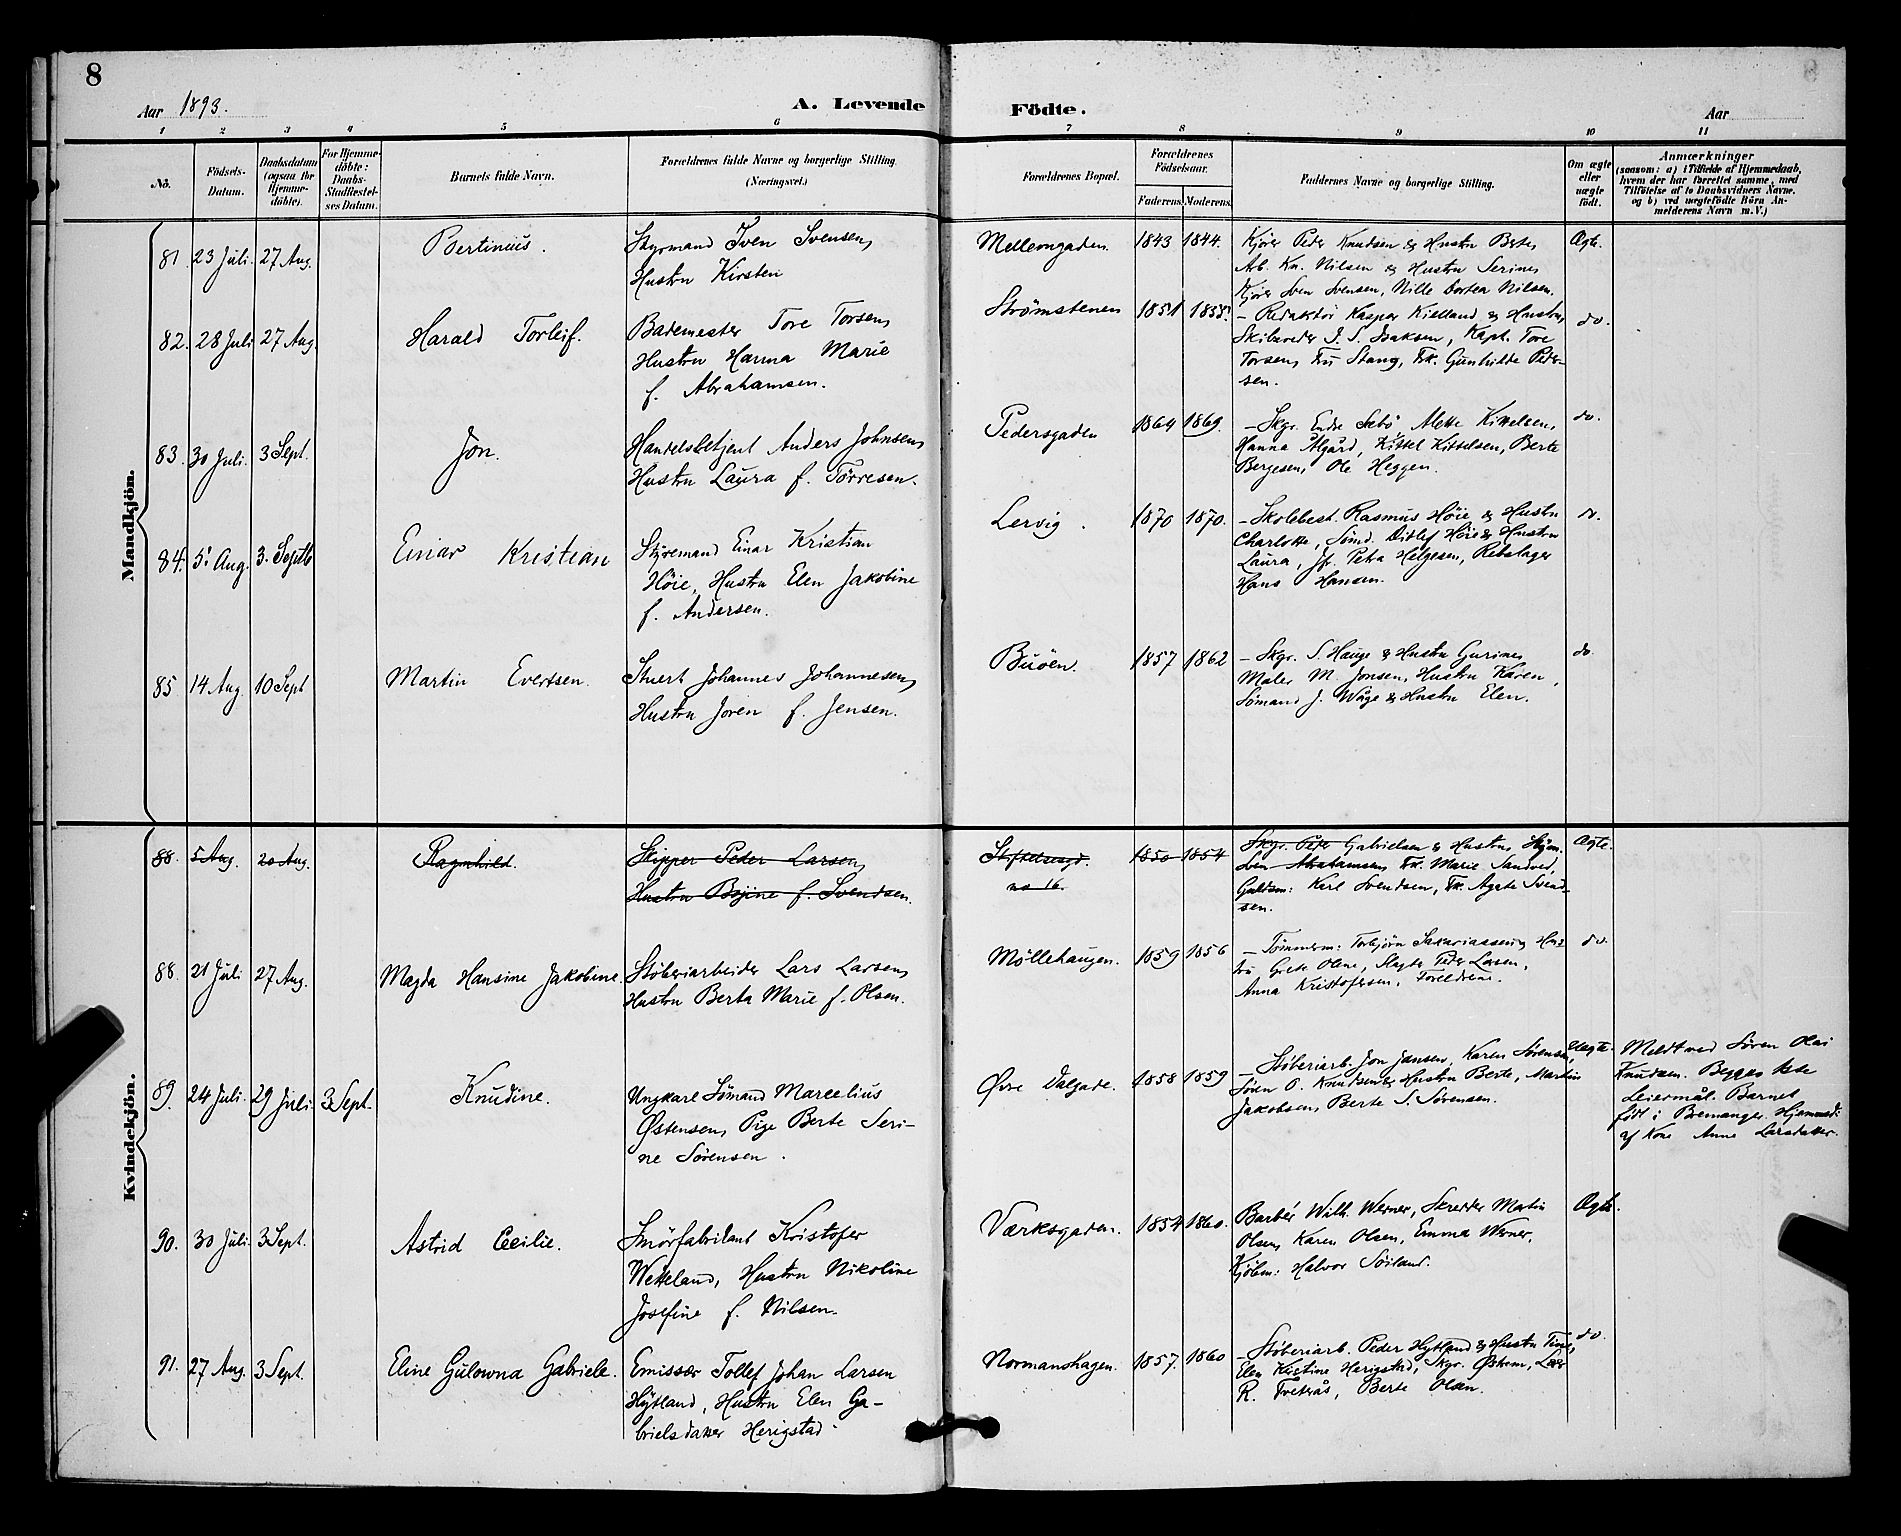 8
Aar 1893.
A. Levende Födte.
Aar
1 2 3 4 5 6 7 8 9 10 11
No.
Födsels-Datum.
Daabsdatum (ogsaa for Hjemme-döbte).
For Hjemme-döbte: Daabs-Stadfæstel-ses Datum.
Barnets fulde Navn.
Forældrenes fulde Navne og borgerlige Stilling. (Næringsvei.)
Forældrenes Bopæl.
Forældrenes Födselsaar.
Faderens. Moderens.
Faddernes Navne og borgerlige Stilling.
Om ægte eller uægte født.
Anmærkninger
(saasom: a) i Tilfælde af Hjemmedaab,
hvem der har forrettet samme, med
Tilföielse af to Daabsvidners Navne.
og b) ved uægtefödte Börn An-
melderens Navn m.V.)
Mandkjön.
81. 23 Juli. 27 Aug.
Bertinius.
Styrmand Iven Svensen,
Hustru Kirsten
Mellemgaden. 1843 1844.
Kjører Peder Knudsen & Hustru Berte,
Arb. Kn. Nilsen & Hustru Serine,
Kjører Sven Svensen, Nille Dortea Nilsen.
Ægte.
82. 28 Juli 27 Aug.
Harald Torleif.
Bademester Tore Torsen,
Hustru Hanna Marie
f. Abrahamsen.
Strømstenen 1851
– Redaktør Kasper Kielland & Hustru,
Skibsreder J. S. Isaksen, Kapt. Tore
Torsen, Fru Stang, Frk. Gunhilde Peder-
sen.
do.
83. 30 Juli. 3 Sept.
Jon.
Handelsbetjent Anders Johnsen,
Hustru Laura f. Tørresen.
Pedersgaden 1864 1869.
– Skgr. Endre Sæbø, Alette Kittelsen,
Hanna Ålgård, Kittel Kittelsen, Berte
Bergesen, Ole Heggen.
do.
84. 5' Aug. 3. Septb
Einar Kristian
Styremand Einar Kristian
Höie, Hustru Elen Jakobine
f. Andersen.
Lervig. 1870 1870.
– Skolebest. Rasmus Höie & Hustru
Charlotte, Sømd. Ditlef Höie & Hustru
Laura, Jfr. Petra Helgesen, Rebslager
Hans Hansen.
do.
85 14 Aug. 10 Sept
Martin Evertsen.
Stuert Johannes Johannesen,
Hustru Joren f. Jensen.
Buöen. 1857 1862
– Skgr. S. Hauge & Hustru Gurine,
Maler M. Jonsen, Hustru Karen,
Sømand J. Våge & Hustru Elen.
do.
Kvindekjön.
88. 5 Aug. 20 Aug.
Ragnhild.
Skipper Peder Larsen,
Hustru f. Svendsen.
Stiftelsesgd. no 16. 1850 1854
Skgr. Peter Gabrielsen & Hustru,
Sven Abrahamsen, Frk. Marie Sandved,
Guldsm: Karl Svendsen, Frk. Agate Svend-
sen.
Ægte.
88. 21 Juli 27 Aug.
Magda Hansine Jakobine.
Støberiarbeider Lars Larsen,
Hustru Berta Marie f. Olsen.
Möllehaugen. 1859 1856
– Tømmerm: Torbjørn Sakariassen & Hus-
tru Grete Oline, Slagter Peder Larsen,
Anna Kristofersen, Foreldrene.
do.
89. 24 Juli. 29 Juli. 3 Sept.
Knudine.
Ungkarl Sømand Marcelius
Østensen, Pige Berte Seri-
ne Sørensen.
Øvre Dalgade. 1858 1859
– Støberiarb. Jon Jansen, Karen Sørensen,
Sören O. Knudsen & Hustru Berte, Martin
Jakobsen, Berte S. Sørensen.
Uægte.
Meldt ved Søren Olai
Knudsen. Begges 1ste
Leiermål. Barnet
født i Bremanger. Hjemmed:
af Kone Anne Larsdatter.
90. 30 Juli. 3 Sept.
Astrid Cecilie.
Smörfabrikant Kristofer
Wetteland, Hustru Nikoline
Josefine f. Nilsen.
Værksgaden. 1854 1860.
Barbér Wilh. Werner, Skredder Martin
Olsen, Karen Olsen, Emma Werner,
Kjøbm: Halvor Söiland.
Ægte.
91. 27 Aug. 3 Sept.
Eline Gulowna Gabriele.
Emissær Tollef Johan Larsen
Hytland, Hustru Elen Ga-
brielsdatter Herigstad.
Normanshagen. 1857. 1860
– Støberiarb. Peder Hytland & Hustru Tine,
Elen Kristine Herigstad, Skgr. Østrem,
R. Tveterås, Berte Olsen.
do.